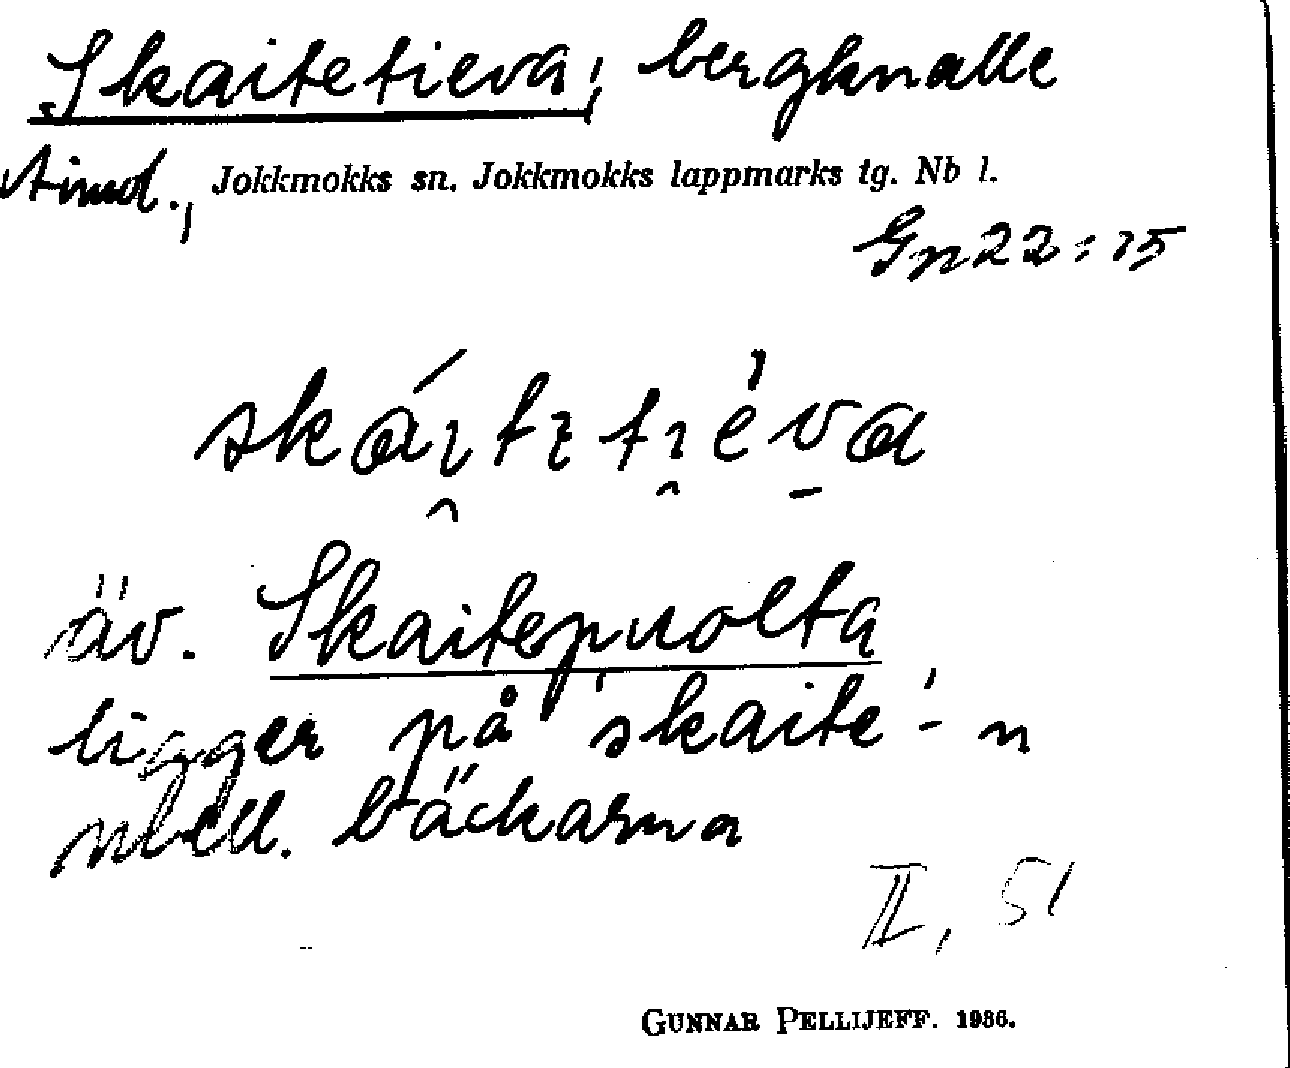 Skaitetieva, bergknalle
Jokkmokks sn. Jokkmokks lappmarks tg. Nb l.
Gn 22:15
äv. Skaitepuolta
ligger på 'skaite'-n
mell. bäckarna
II, 51
GUNNAR PELLIJEFF. 1936.